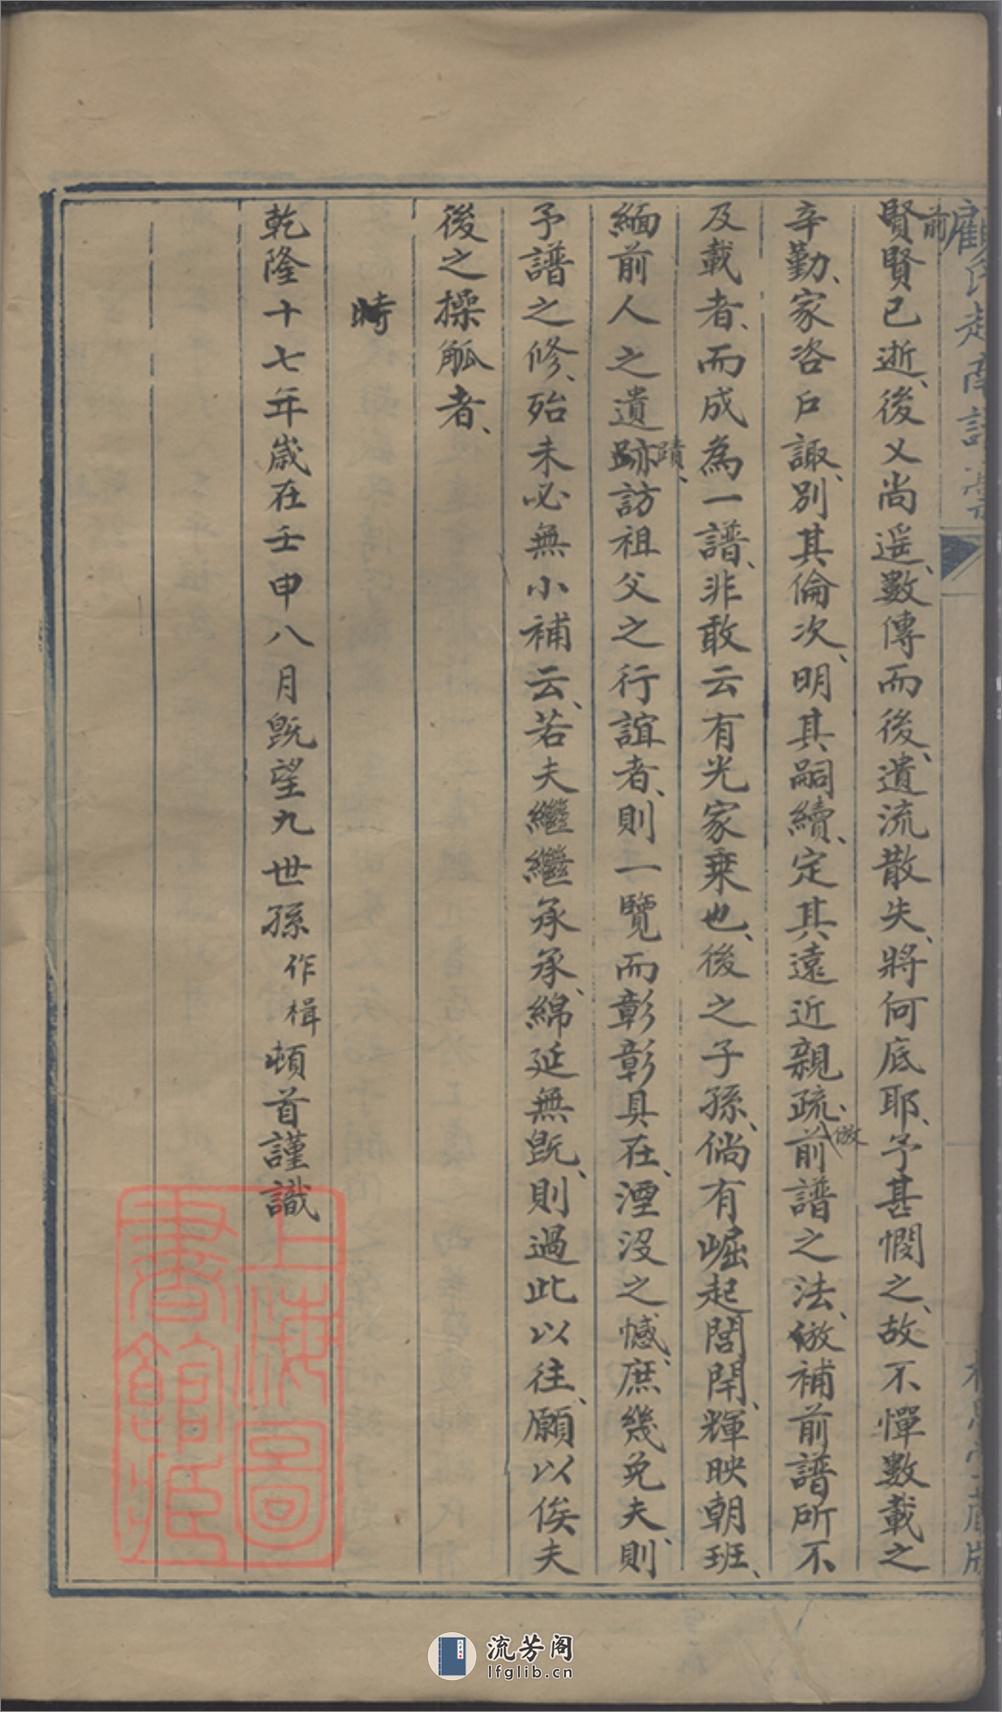 前
賢賢已逝、後乂尚遥、數傳而後、遺流散失、將何底耶、予甚憫之、故不憚數載之
辛勤、家咨戶諏、別其倫次、明其嗣續、定其遠近親疏、倣前譜之法、倣補前譜所不
及載者、而成為一譜、非敢云有光家乗也、後之子孫、倘有崛起閭閈、輝映朝班、
緬前人之遺跡蹟、訪祖父之行誼者、則一覽而彰彰具在、湮没之憾、庶幾免夫、則
予譜之修、殆未必無小補云、若夫繼繼承承、綿延無旣、則過此以往、願以俟夫
後之操觚者、
時
乾隆十七年歲在壬申八月旣望九世孫作楫頓首謹識
上海圖書館藏
流芳阁
lfglib.cn